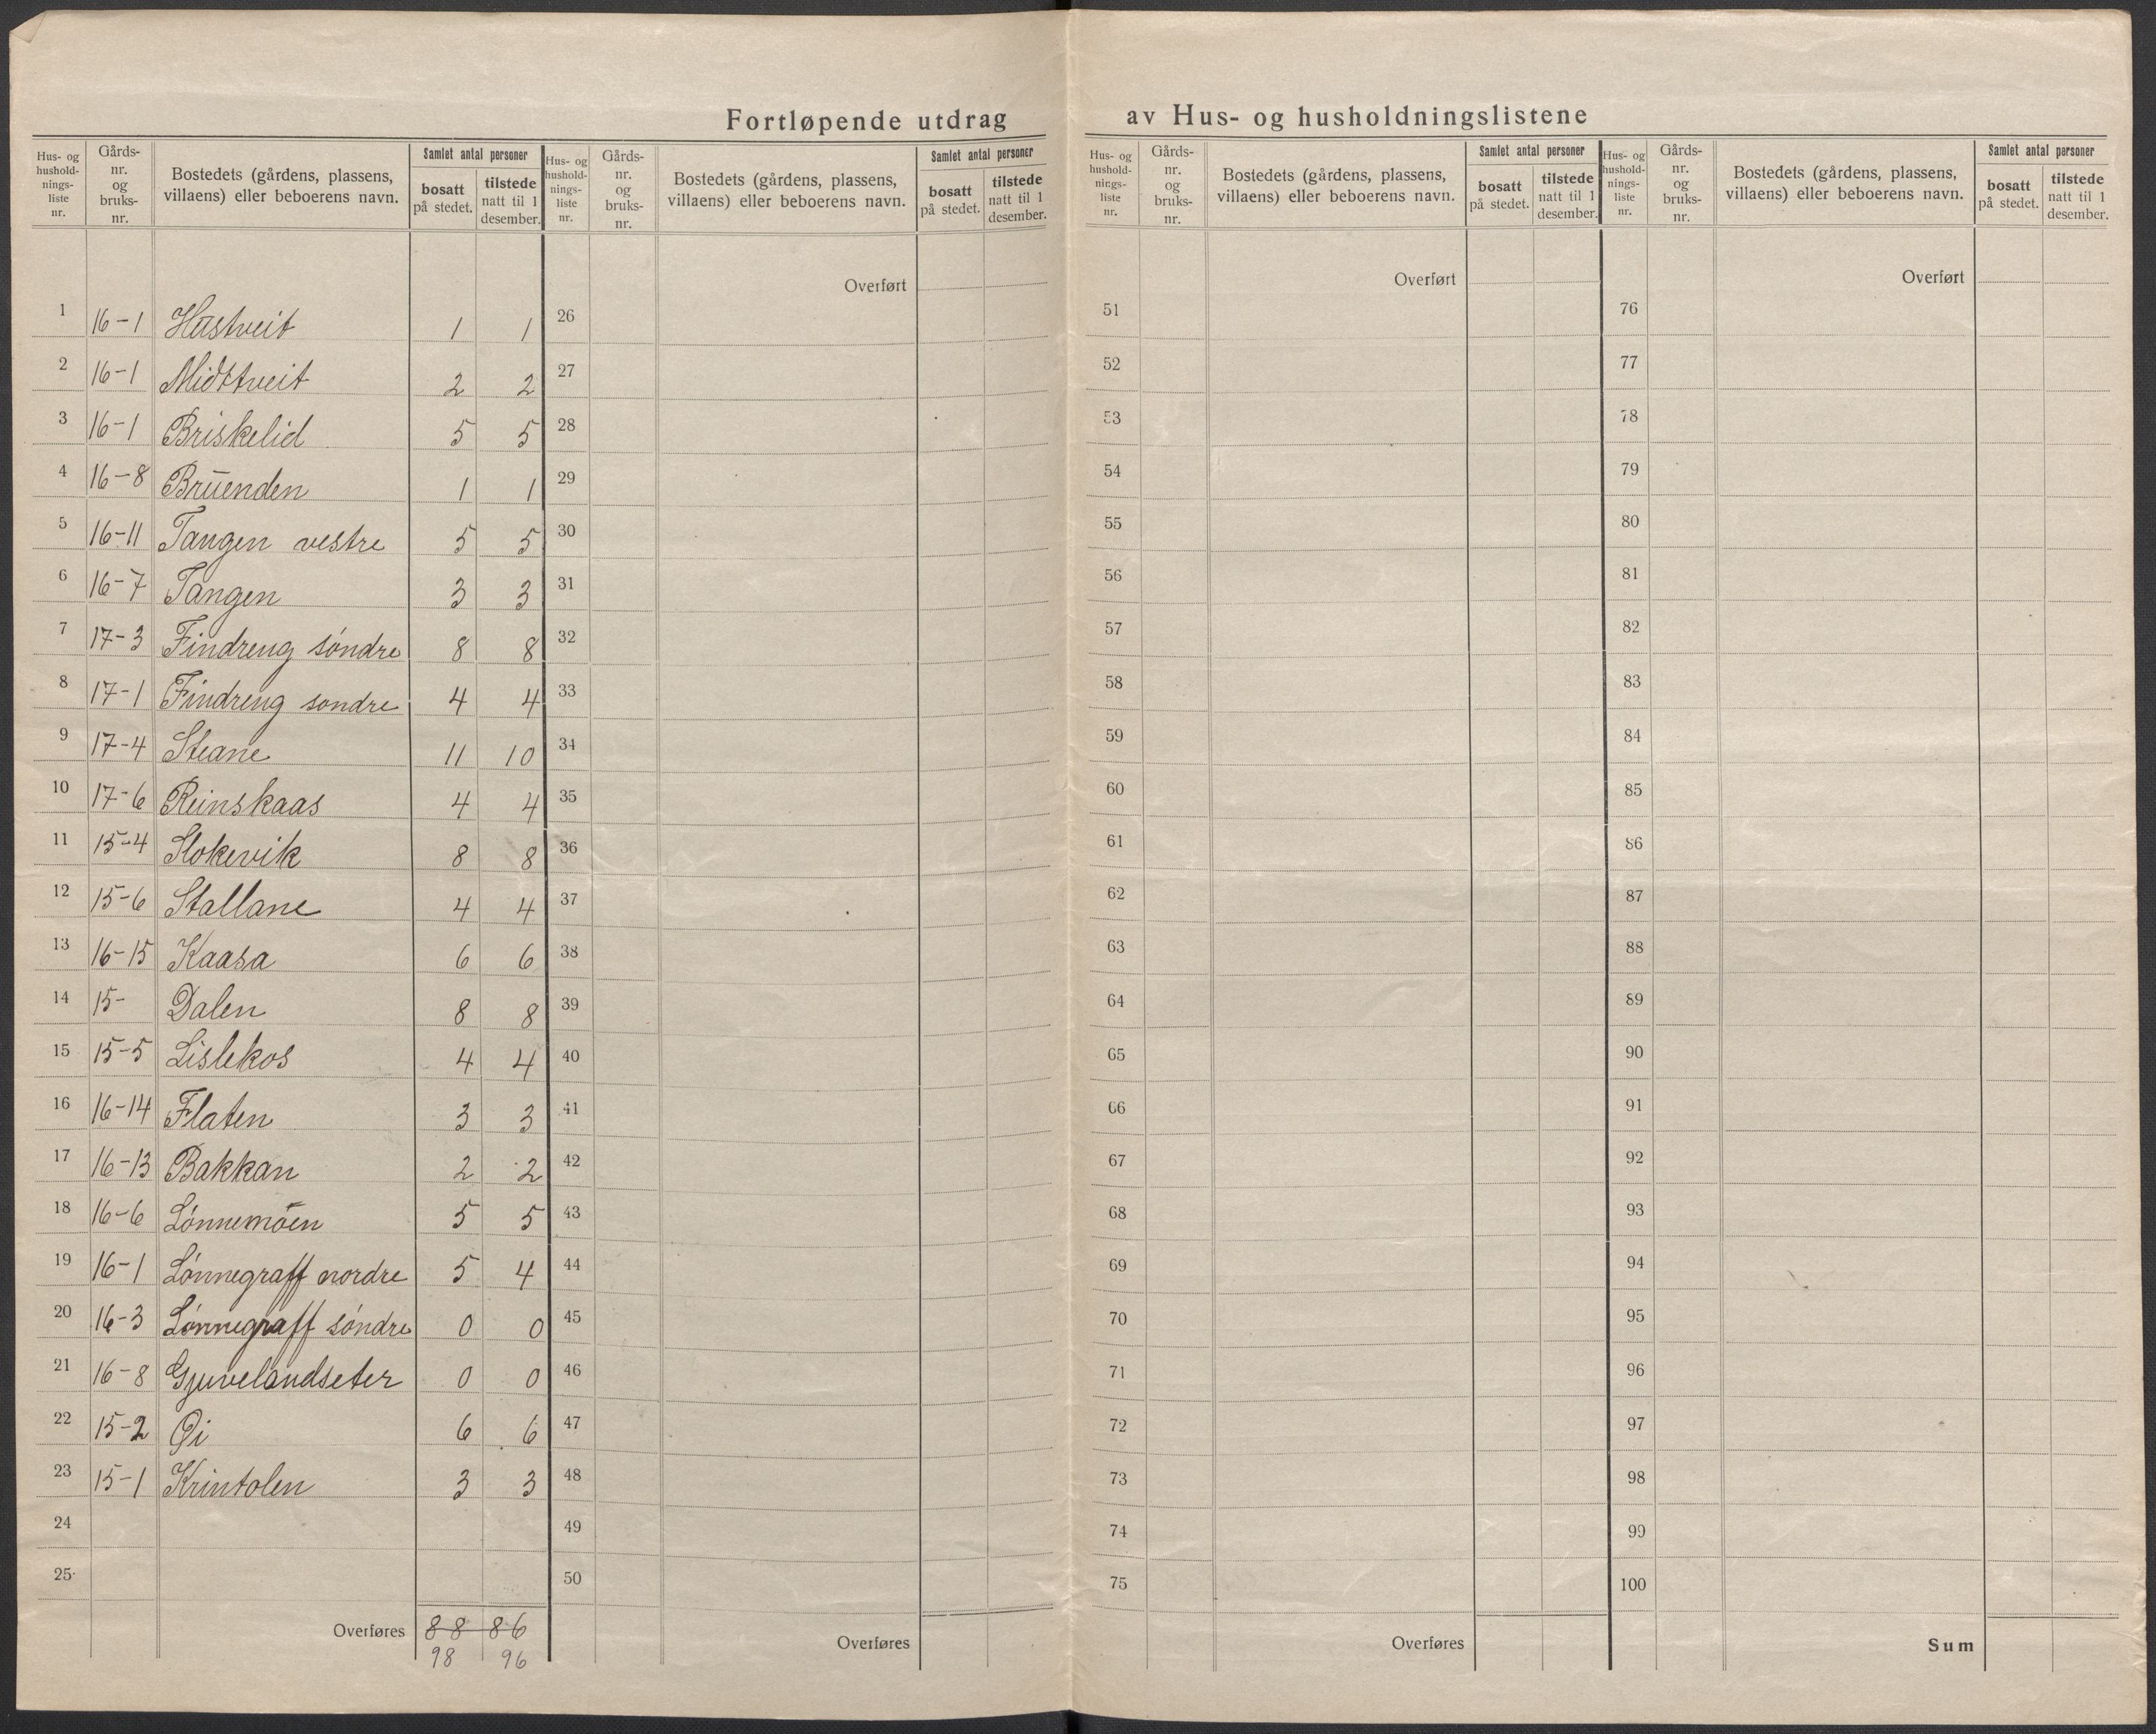 Fortløpende utdrag av Hus- og husholdningslistene
Hus- og hushold- nings- liste nr.
Gårds- nr. og bruks- nr.
Bostedets (gårdens, plassens, villaens) eller beboerens navn.
Samlet antal personer
bosatt på stedet.
tilstede natt til 1 desember.
Hus- og hushold- nings- liste nr.
Gårds- nr. og bruks- nr.
Bostedets (gårdens, plassens, villaens) eller beboerens navn.
Samlet antal personer
bosatt på stedet.
tilstede natt til 1 desember.
Hus- og hushold- nings- liste nr.
Gårds- nr. og bruks- nr.
Bostedets (gårdens, plassens, villaens) eller beboerens navn.
Samlet antal personer
bosatt på stedet.
tilstede natt til 1 desember.
Hus- og hushold- nings- liste nr.
Gårds- nr. og bruks- nr.
Bostedets (gårdens, plassens, villaens) eller beboerens navn.
Samlet antal personer
bosatt på stedet.
tilstede natt til 1 desember.
Overført Overført Overført
1 16-1 Hastveit 1 1 26 51 76
2 16-1 Midttveit 2 2 27 52 77
3 16-1 Briskelid 5 5 28 53 78
4 16-8 Bruenden 1 1 29 54 79
5 16-11 Tangen vestre 5 5 30 55 80
6 16-7 Tangen 3 3 31 56 81
7 17-3 Findreng søndre 8 8 32 57 82
8 17-1 Findreng sondre 4 4 33 58 83
9 17-4 Steane 11 10 34 59 84
10 17-6 Reinskaas 4 4 35 60 85
11 15-4 Slokevik 8 8 36 61 86
12 15-6 Stallane 4 4 37 62 87
13 16-15 Kaasa 6 6 38 63 88
14 15- Dalen 8 8 39 64 89
15 15-5 Lislekos 4 4 40 65 90
16 16-14 Flaten 3 3 41 66 91
17 16-13 Bakkan 2 2 42 67 92
18 16-6 Lønnemoen 5 5 43 68 93
19 16-1 Lønnegraff nordre 5 4 44 69 94
20 16-3 Lønnegraff søndre 0 0 45 70 95
21 16-8 Gjuvelandseter 0 0 46 71 96
22 15-2 Øi 6 6 47 72 97
23 15-1 Krintolen 3 3 48 73 98
24 49 74 99
25 50 75 100
Overføres 88 86 Overføres Overføres Sum
98 96